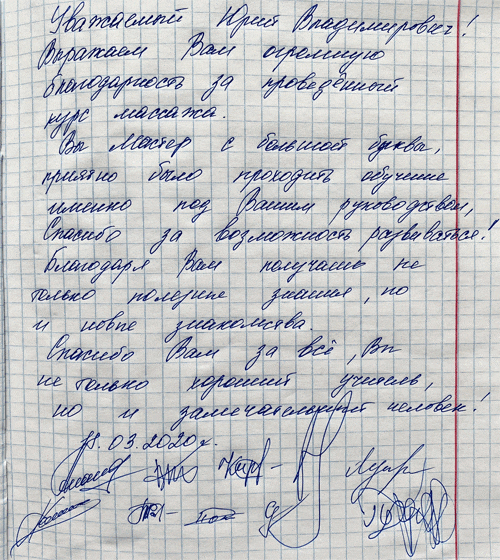 Уважаемый Юрий Владимирович!
Выражаем Вам огромную
благодарность за проведённый
курс массажа.
Вы Мастер с большой буквы,
приятно было проходить обучение
именно под Вашим руководством,
Спасибо за возможность развиваться!
Благодаря Вам получили не
только полезные знания, но
и новые знакомства.
Спасибо Вам за всё, Вы
не только хороший учитель,
но и замечательный человек!
11.03.2020г.